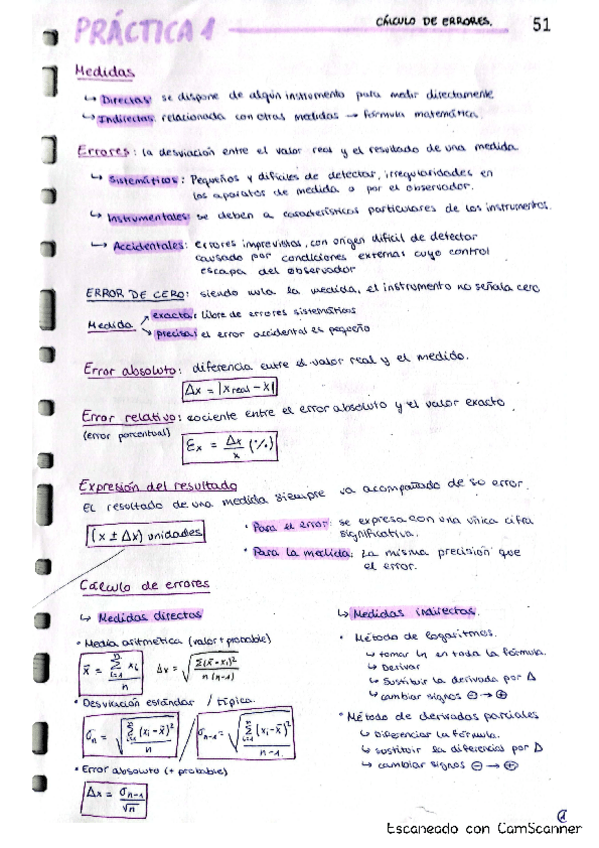 PRÁCTICA 1 CÁLCULO DE ERRORES. 51
Medidas
↳ Directas: se dispone de algún instrumento para medir directamente
↳ Indirectas: relacionada con otras medidas → fórmula matemática.
Errores: la desviación entre el valor real y el resultado de una medida
↳ Sistemáticos: Pequeños y difíciles de detectar, irregularidades en
los aparatos de medida o por el observador.
↳ Instrumentales: se deben a características particulares de los instrumentos.
↳ Accidentales: Errores imprevistos, con origen difícil de detectar
causado por condiciones externas cuyo control
escapa del observador
ERROR DE CERO: siendo nula la medida, el instrumento no señala cero
Medida
exacta: libre de errores sistemáticos
precisa: el error accidental es pequeño
Error absoluto: diferencia entre el valor real y el medido.
Δx = |xreal - x|
Error relativo: cociente entre el error absoluto y el valor exacto
(error porcentual)
Ɛx = Δx/x (%)
Expresión del resultado
El resultado de una medida siempre va acompañado de su error.
(x ± Δx) unidades
• Para el error: se expresa con una única cifra
significativa.
• Para la medida: La misma precisión que
el error.
Cálculo de errores
↳ Medidas directas
• Media aritmética (valor + probable)
x̄ = Σⁿᵢ₌₁ xᵢ / n Δx = √(Σ(x̄-xᵢ)² / n(n-1))
• Desviación estándar / típica.
σn = √(Σⁿᵢ₌₁ (xᵢ-x̄)² / n) / σn-1 = √(Σⁿᵢ₌₁ (xᵢ-x̄)² / n-1)
• Error absoluto (+ probable)
Δx = σn-1 / √n
↳ Medidas indirectas.
• Método de logaritmos.
↳ tomar ln en toda la fórmula.
↳ Derivar
↳ Sustituir la derivada por Δ
↳ cambiar signos ⊖ → ⊕
• Método de derivadas parciales
↳ Diferenciar la fórmula.
↳ sustituir la diferencias por Δ
↳ cambiar signos ⊖ → ⊕
①
Escaneado con CamScanner